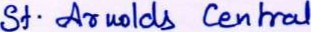 St. Arnolds Central